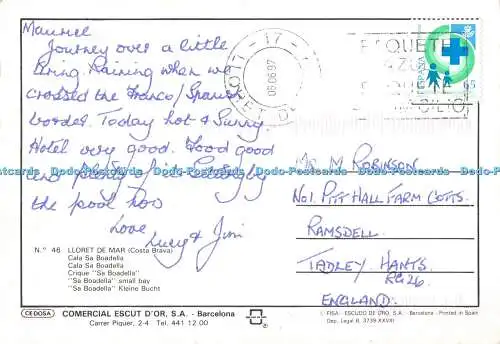 Maurice
Journey over a little
tiring. Raining when we
crossed the Franco/Spanish
border. Today hot & Sunny
Hotel very good. Food good
and plenty
the pool too
Love
Lucy & Jim
-17-
06.06.97
LLORET DE
PAQUETE
AZUL
ESPAÑA
65
MR M ROBINSON
NO1. PITT HALL FARM COTTS.
RAMSDELL.
TADLEY. HANTS.
RG26
ENGLAND.
N.º 46 LLORET DE MAR (Costa Brava)
Cala Sa Boadella
Cala Sa Boadella
Crique "Sa Boadella"
"Sa Boadella" small bay
"Sa Boadella" Kleine Bucht
CEDOSA COMERCIAL ESCUT D'OR, S.A. - Barcelona
Carrer Piquer, 2-4 Tel. 441 12 00
© FISA - ESCUDO DE ORO, S.A. - Barcelona - Printed in Spain
Dep. Legal B. 3739-XXVIII
Dado-Postcards